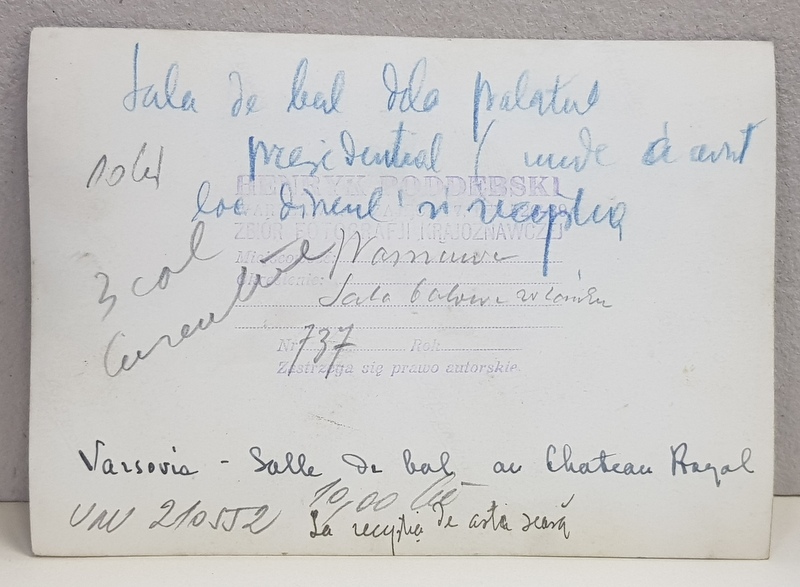 Sala de bal dela palatul
prezidential / unde a avut
loc dineul si receptia
10 lei
3 col
HENRYK PODDĘBSKI
ZBIÓR FOTOGRAFJI KRAJOZNAWCZEJ
Miejscowość: Warszawa
Określenie:
Sala balowa w Zamku
Nr. 737 Rok
Zastrzega się prawo autorskie.
Varsovia - Salle de bal au Chateau Royal
10,00 lei
210552
La recepția de astă seară